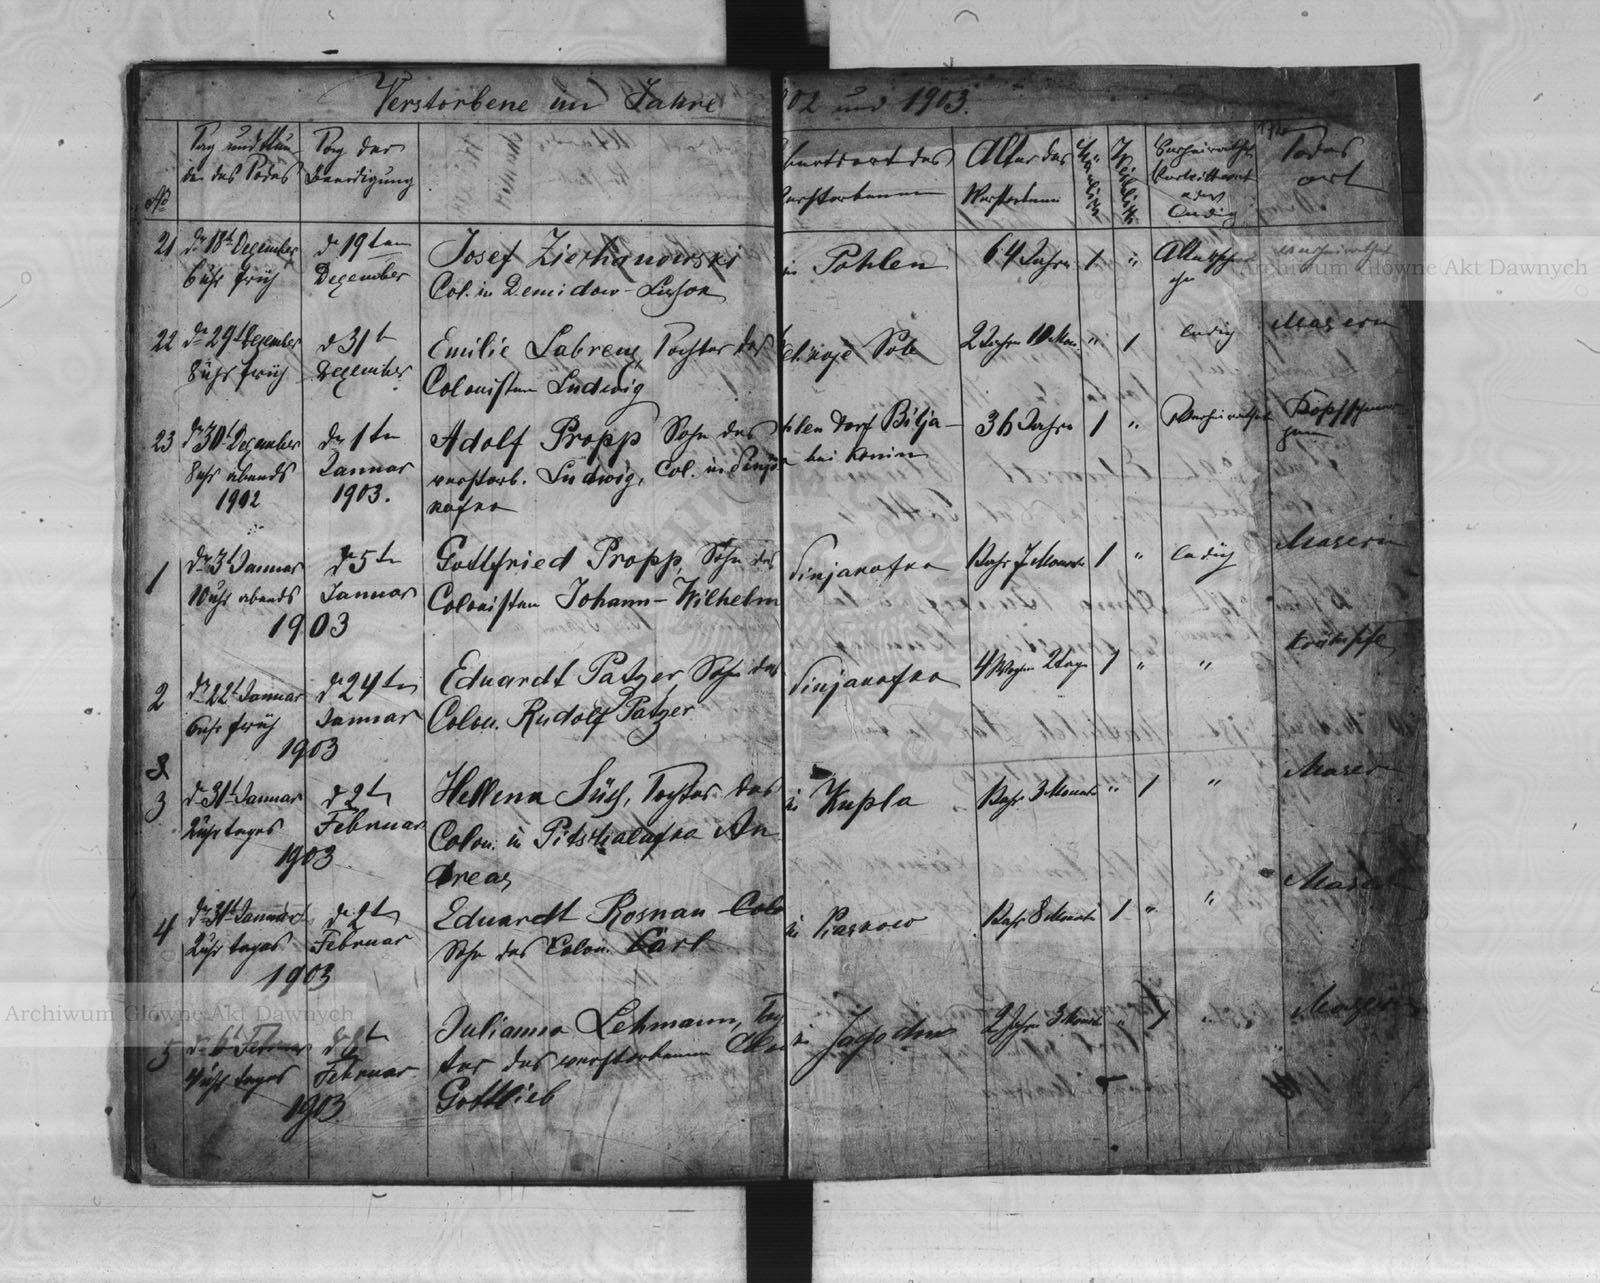 Verstorbene im Jahre 1902 und 1903.
No
Tag und Stun-
de des Todes
Tag der
Beerdigung
Geburtsort des
Verstorbenen
Alter des
Verstorbenen
Männlich
Weiblich
Verheirathet
Verwittwet
oder
Ledig
Todes
art
21 d. 18t Dezember
6 Uhr früh
d 19ten
Dezember
Josef Zierhanowski
Col. in Demidow-
in Pohlen
64 Jahre
1 "
22 d. 29t Dezember
8 Uhr früh
d 31t
Dezember
Emilie Labrenz, Tochter des
Colonisten Ludwig
2 Jahre 10 Mon
" 1
ledig
Masern
23 d. 30t Dezember
8 Uhr abends
1902
d 1ten
Januar
1903.
Adolf Propp Sohn des
verstorb. Ludwig, Col. in Sinja
kofka
Pohlen Dorf Bilja-
bei Konin
36 Jahre
1 "
Verheirathet
Kopfschmer
zen
1 d. 3t Januar
10 Uhr abends
1903
d 5ten
Januar
Gottfried Propp, Sohn des
Colonisten Johann-Wilhelm
Sinjakofka
1 Jahr 7 Monate
1 "
ledig
Masern
2 d. 22t Januar
6 Uhr früh
1903
d 24ten
Januar
Eduardt Patzer, Sohn des
Colon. Rudolf Patzer
Sinjakofka
4 Wochen 2 Tage
1 "
"
3 d. 31t Januar
2 Uhr tages
1903
d 2t
Februar
Hellena Süss, Tochter des
Colon. in An
dreas
in Kupla
1 Jahr 3 Monate
" 1
"
Masern
4 d. 31t Januar
2 Uhr tages
1903
d 2t
Februar
Eduardt Rosnau
Sohn des Colon. Carl
in
1 Jahr 8 Monate
1 "
"
Masern
5 d. 6t Februar
4 Uhr tages
1903.
Februar
Julianna Lehmann, Toch
ter des verstorbenen
Gottlieb
in Jagodn
2 Jahre 3 Monate
" 1
"
Masern
Archiwum Główne Akt Dawnych
Archiwum Główne Akt Dawnych